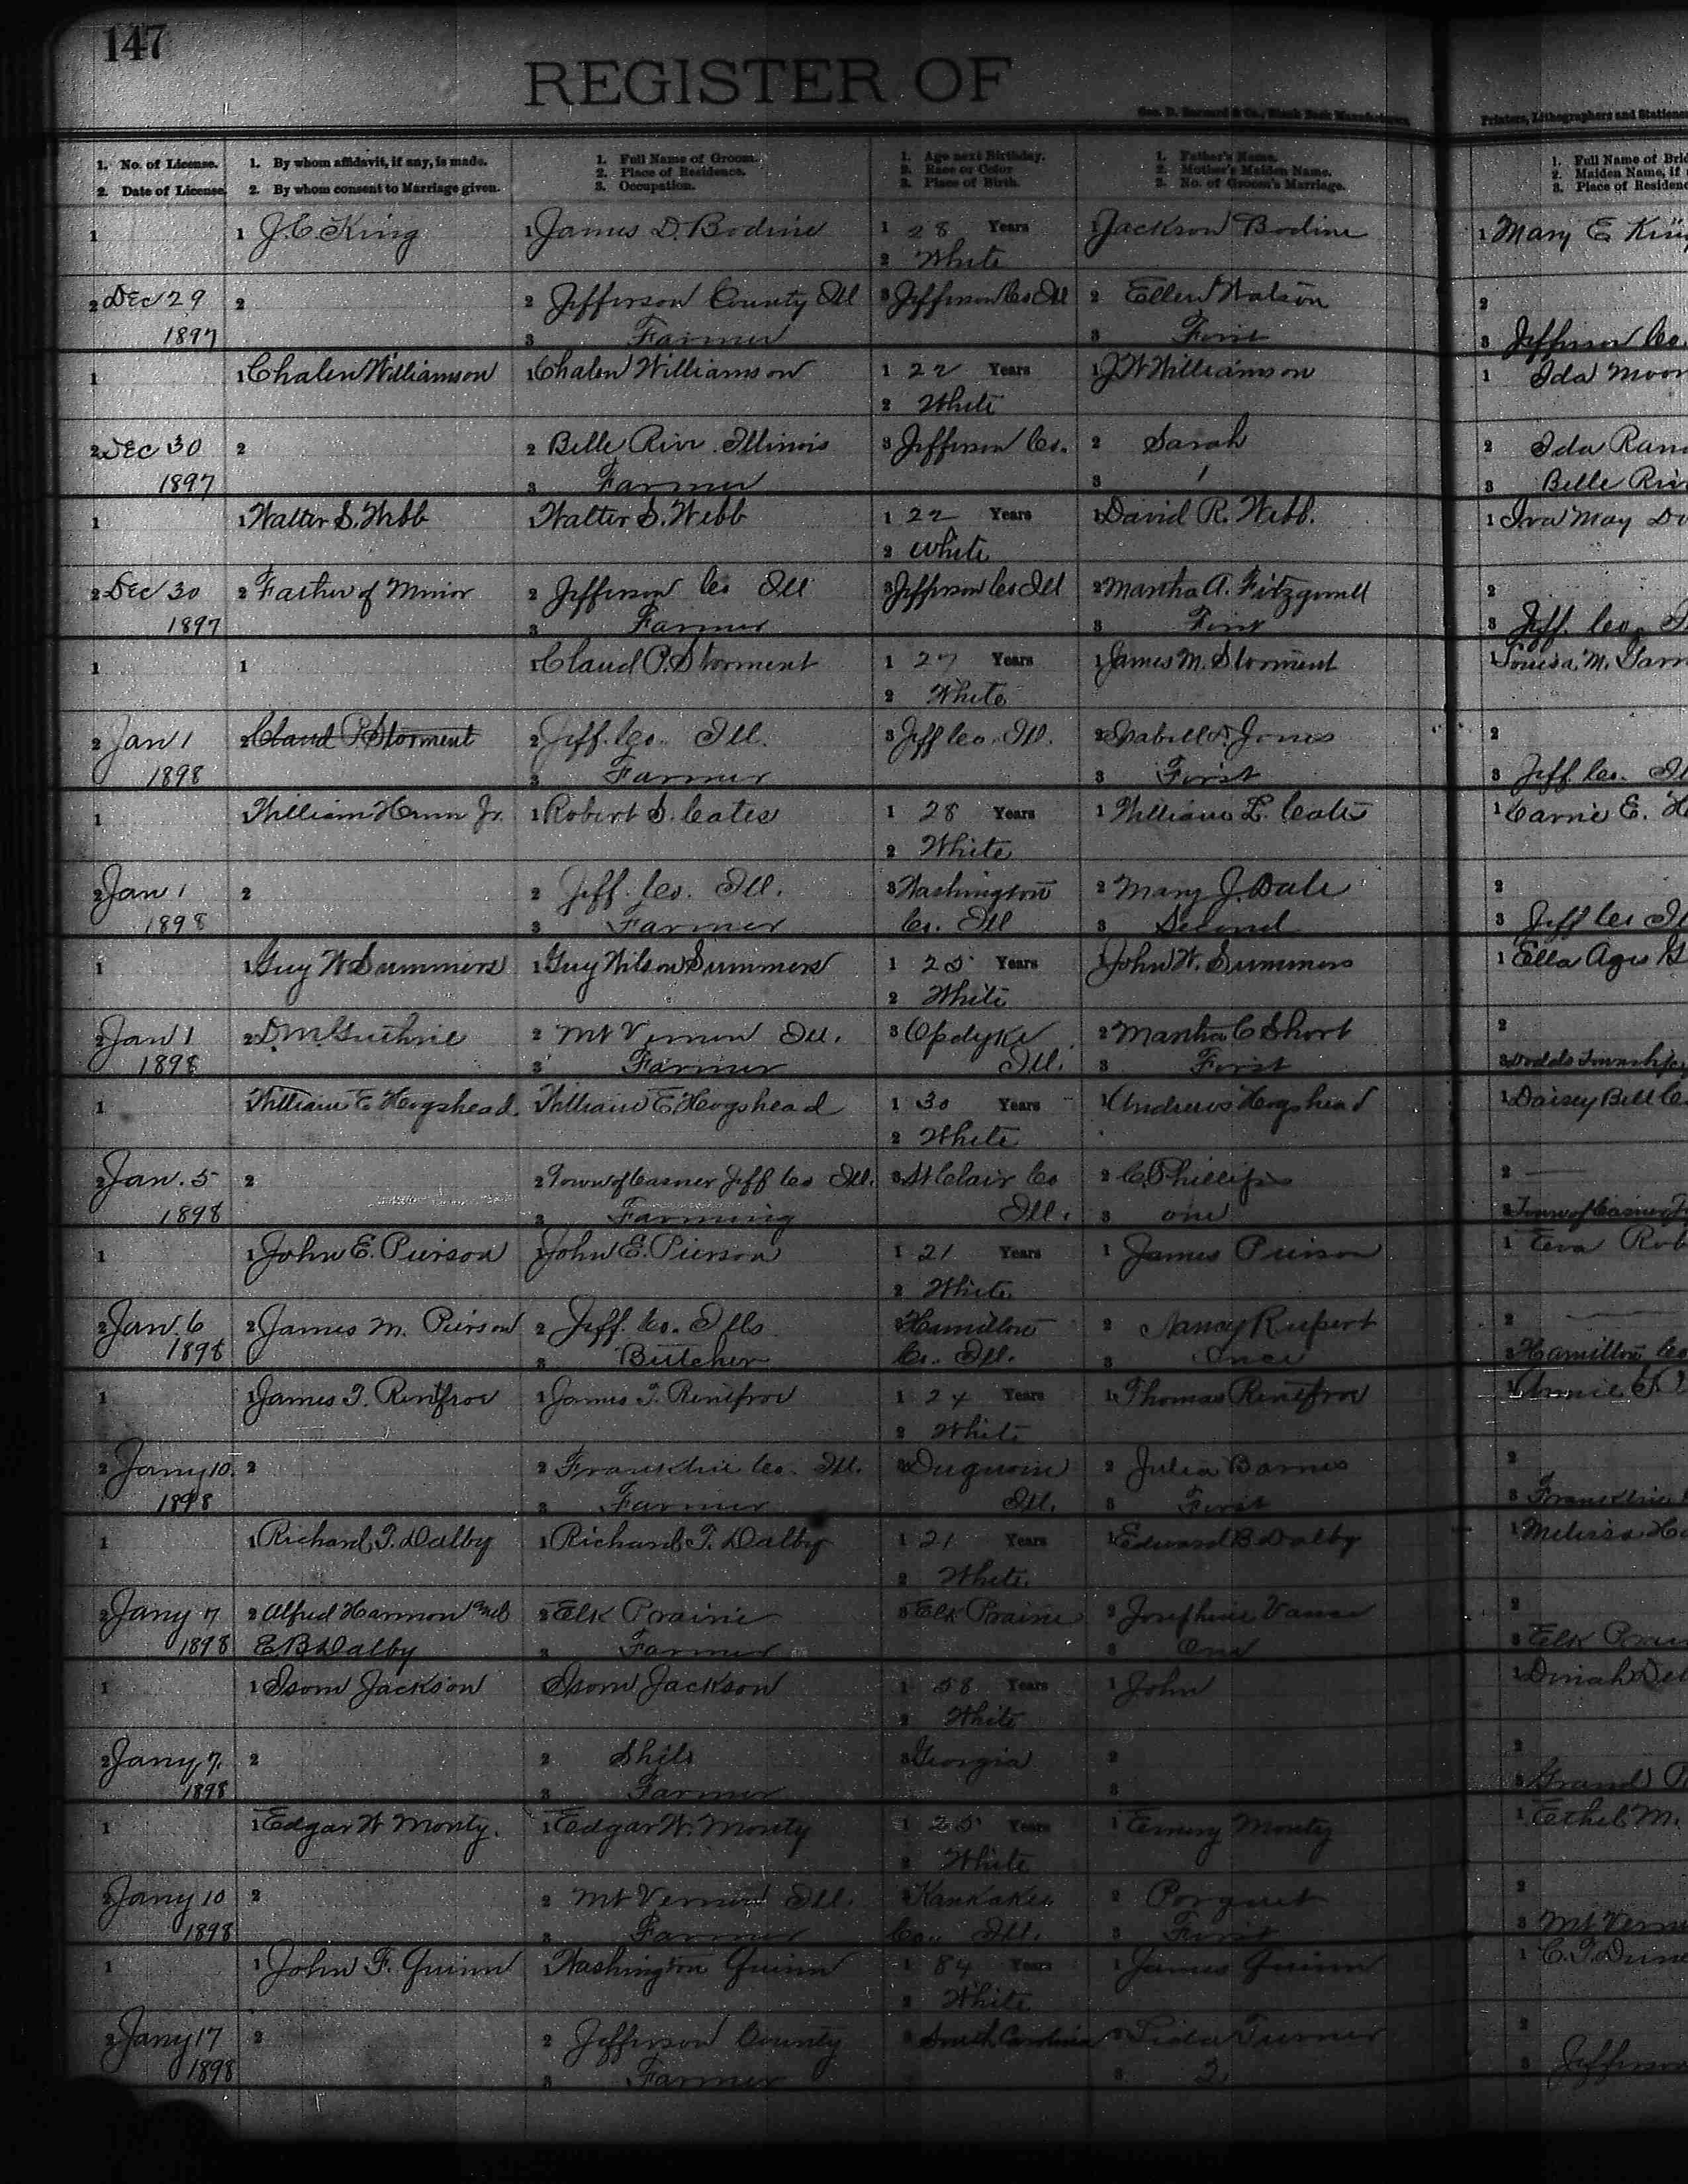 147
REGISTER OF
Geo. D. Barnard & Co., Blank Book Manufacturers,
Printers, Lithographers and Stationers
1. No. of License.
2. Date of License.
1. By whom affidavit, if any, is made.
2. By whom consent to Marriage given.
1. Full Name of Groom.
2. Place of Residence.
3. Occupation.
1. Age next Birthday.
2. Race or Color
3. Place of Birth.
1. Father's Name.
2. Mother's Maiden Name.
3. No. of Groom's Marriage.
1. Full Name of Brid
2. Maiden Name, if
3. Place of Residenc
1 1 J. C. King 1 James D. Bodine 1 28 Years 1 Jackson Bodine 1 Mary E King
2 White
2 Dec 29 2 2 Jefferson County Ill 3 Jefferson Co Ill 2 Ellen Watson 2
1897 3 Farmer 3 First 3 Jefferson Co.
1 1 Chalen Williamson 1 Chalen Williamson 1 22 Years 1 J W Williamson 1 Ida Moor
2 White
2 Dec 30 2 2 Belle Rive Illinois 3 Jefferson Co. 2 Sarah 2 Ida Ran
1897 3 Farmer 3 1 3 Belle Riv
1 1 Walter S. Webb 1 Walter S. Webb 1 22 Years 1 David R. Webb. 1 Iva May
2 White
2 Dec 30 2 Father of Minor 2 Jefferson Co Ill 3 Jefferson Co Ill 2 Martha A. Fitzgerrell 2
1897 3 Farmer 3 First 3 Jeff. Co.
1 1 1 Claud P. Storment 1 27 Years 1 James M. Storment 1 Louisa M. Garr
2 White
2 Jan 1 2 Claud P Storment 2 Jeff. Co. Ill. 3 Jeff Co. Ill. 2 Isabell Jones 2
1898 3 Farmer 3 First 3 Jeff. Co. Il
1 William Hunn Jr. 1 Robert S. Cates 1 28 Years 1 William L. Cates 1 Carrie E. H
2 White
2 Jan 1 2 2 Jeff. Co. Ill. 3 Washington 2 Mary J. Dale 2
1898 3 Farmer Co. Ill 3 Second 3 Jeff Co Il
1 1 Guy W Summers 1 Guy Wilson Summers 1 25 Years 1 John W. Summers 1 Ella
2 White
2 Jan 1 2 D. M. Guthrie 2 Mt Vernon Ill. 3 Opdyke 2 Martha C Short 2
1898 3 Farmer Ill. 3 First 3 Dodds Township
1 William E Hogshead. William E Hogshead 1 30 Years 1 Andrew Hogshead 1 Daisey Bell C
2 White
2 Jan. 5 2 2 Town of Casner Jeff Co Ill. 3 St Clair Co 2 C Phillips 2
1898 3 Farming Ill. 3 one 3 Town of Casner J
1 1 John E. Pierson 1 John E. Pierson 1 21 Years 1 James Pierson 1 Eva Rob
2 White
2 Jan. 6 2 James M. Pierson 2 Jeff. Co. Ills 3 Hamilton 2 Nancy Rupert 2
1898 3 Butcher Co. Ill. 3 Once 3 Hamilton Co
1 1 James T. Rentfroe 1 James T. Rentfroe 1 24 Years 1 Thomas Rentfroe 1 Annie
2 White
2 Jany 10. 2 2 Franklin Co. Ill. 3 Duquoin 2 Julia Barnes 2
1898 3 Farmer Ill. 3 First 3 Franklin
1 1 Richard T. Dalby 1 Richard T. Dalby 1 21 Years 1 Edward B Dalby 1 Melissa Ha
2 White.
2 Jany 7 2 Alfred Harmon and 2 Elk Prairie 3 Elk Prairie 2 Josephine Vance 2
1898 E B Dalby 3 Farmer 3 One 3 Elk Prai
1 1 Isom Jackson Isom Jackson 1 58 Years 1 John 1 Dinah
2 White
2 Jany 7. 2 2 Shilo 3 Georgia 2 2
1898 3 Farmer 3 3 Grand P
1 1 Edgar W Monty. 1 Edgar W. Monty 1 25 Years 1 Emery Monty 1 Ethel M.
2 White
2 Jany 10 2 2 Mt Vernon Ill. 3 Kankakee 2 2
1898 3 Farmer Co. Ill. 3 First 3 Mt Vern
1 1 John F. Quinn 1 Washington Quinn 1 84 Years 1 James Quinn 1 C. T.
2 White
2 Jany 17 2 2 Jefferson County 3 South Carolina 2 Turner 2
1898 3 Farmer 3 2 3 Jefferson